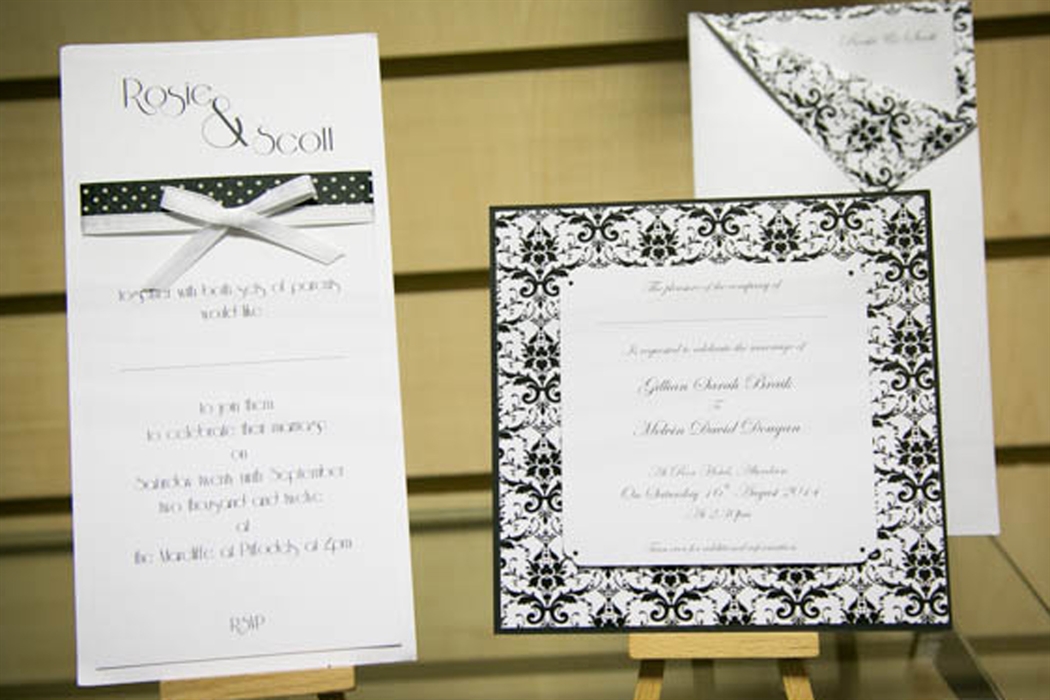 Rosie
&
Scott
together with both sets of parents
would like
to join them
to celebrate their marriage
on
Saturday twenty ninth September
two thousand and twelve
at
the Marcliffe at Pitfodels at 4pm
RSVP
The pleasure of the company of
Is requested to celebrate the marriage of
Gillian Sarah
to
Melvin David Dougan
Hotel, Aberdeen
On Saturday 16th August 2014
At 2.30pm
Turn over for additional information